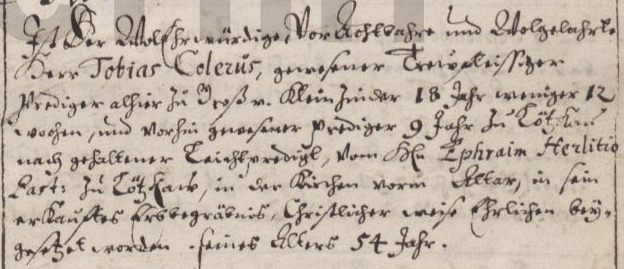 Ist Der WolEhrwürdige, Vor Achtbahre und Wolgelahrte
Herr Tobias Colerus, gewesener Trewfleissiger
Prediger alhier zu Groß v. Klein 18 Jahr weniger 12
wochen, und vorhin gewesener prediger 9 Jahr zu
nach gehaltener Leichtpredigt, vom Hn Ephraim Herlitio
Past: zu, in der Kirchen vorm Altar, in sein
erkaufftes Erbbegräbnis, Christlicher weise Ehrlichen bey-
gesetzet worden. seines Alters 54 Jahr.